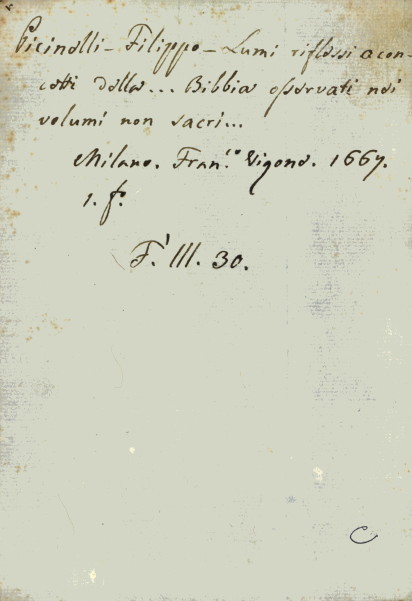 Picinelli - Filippo - Lumi riflessi o con-
cetti della... Bibbia osservati nei
volumi non sacri...
Milano. Fran.co Vigone. 1667.
1. fo.
F.' III. 30.
C